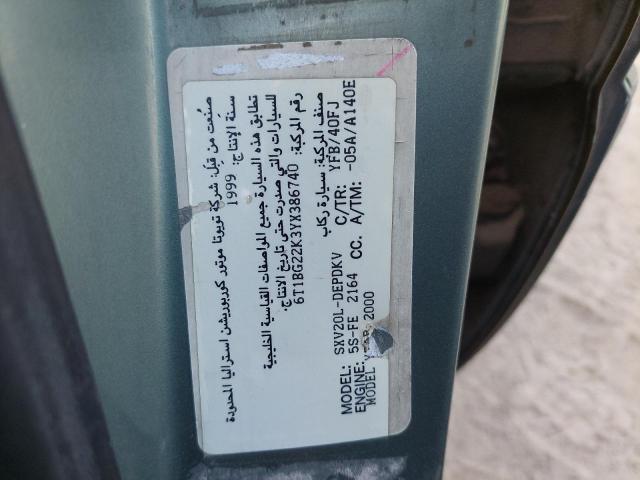 صنعت من قبل: شركة تويوتا موتور كوربوريشن استراليا المحدودة
سنة الإنتاج: 1999
تطابق هذه السيارة جميع المواصفات القياسية الخليجية
للسيارات والتي صدرت حتى تاريخ الانتاج.
رقم المركبة: 6T1BG22K3YX386740
صنف المركبة: سيارة ركاب
MODEL: SXV20L-DEPDKV C/TR: YFB/40FJ
ENGINE: 5S-FE 2164 CC. A/TM: -05A/A140E
MODEL YEAR: 2000